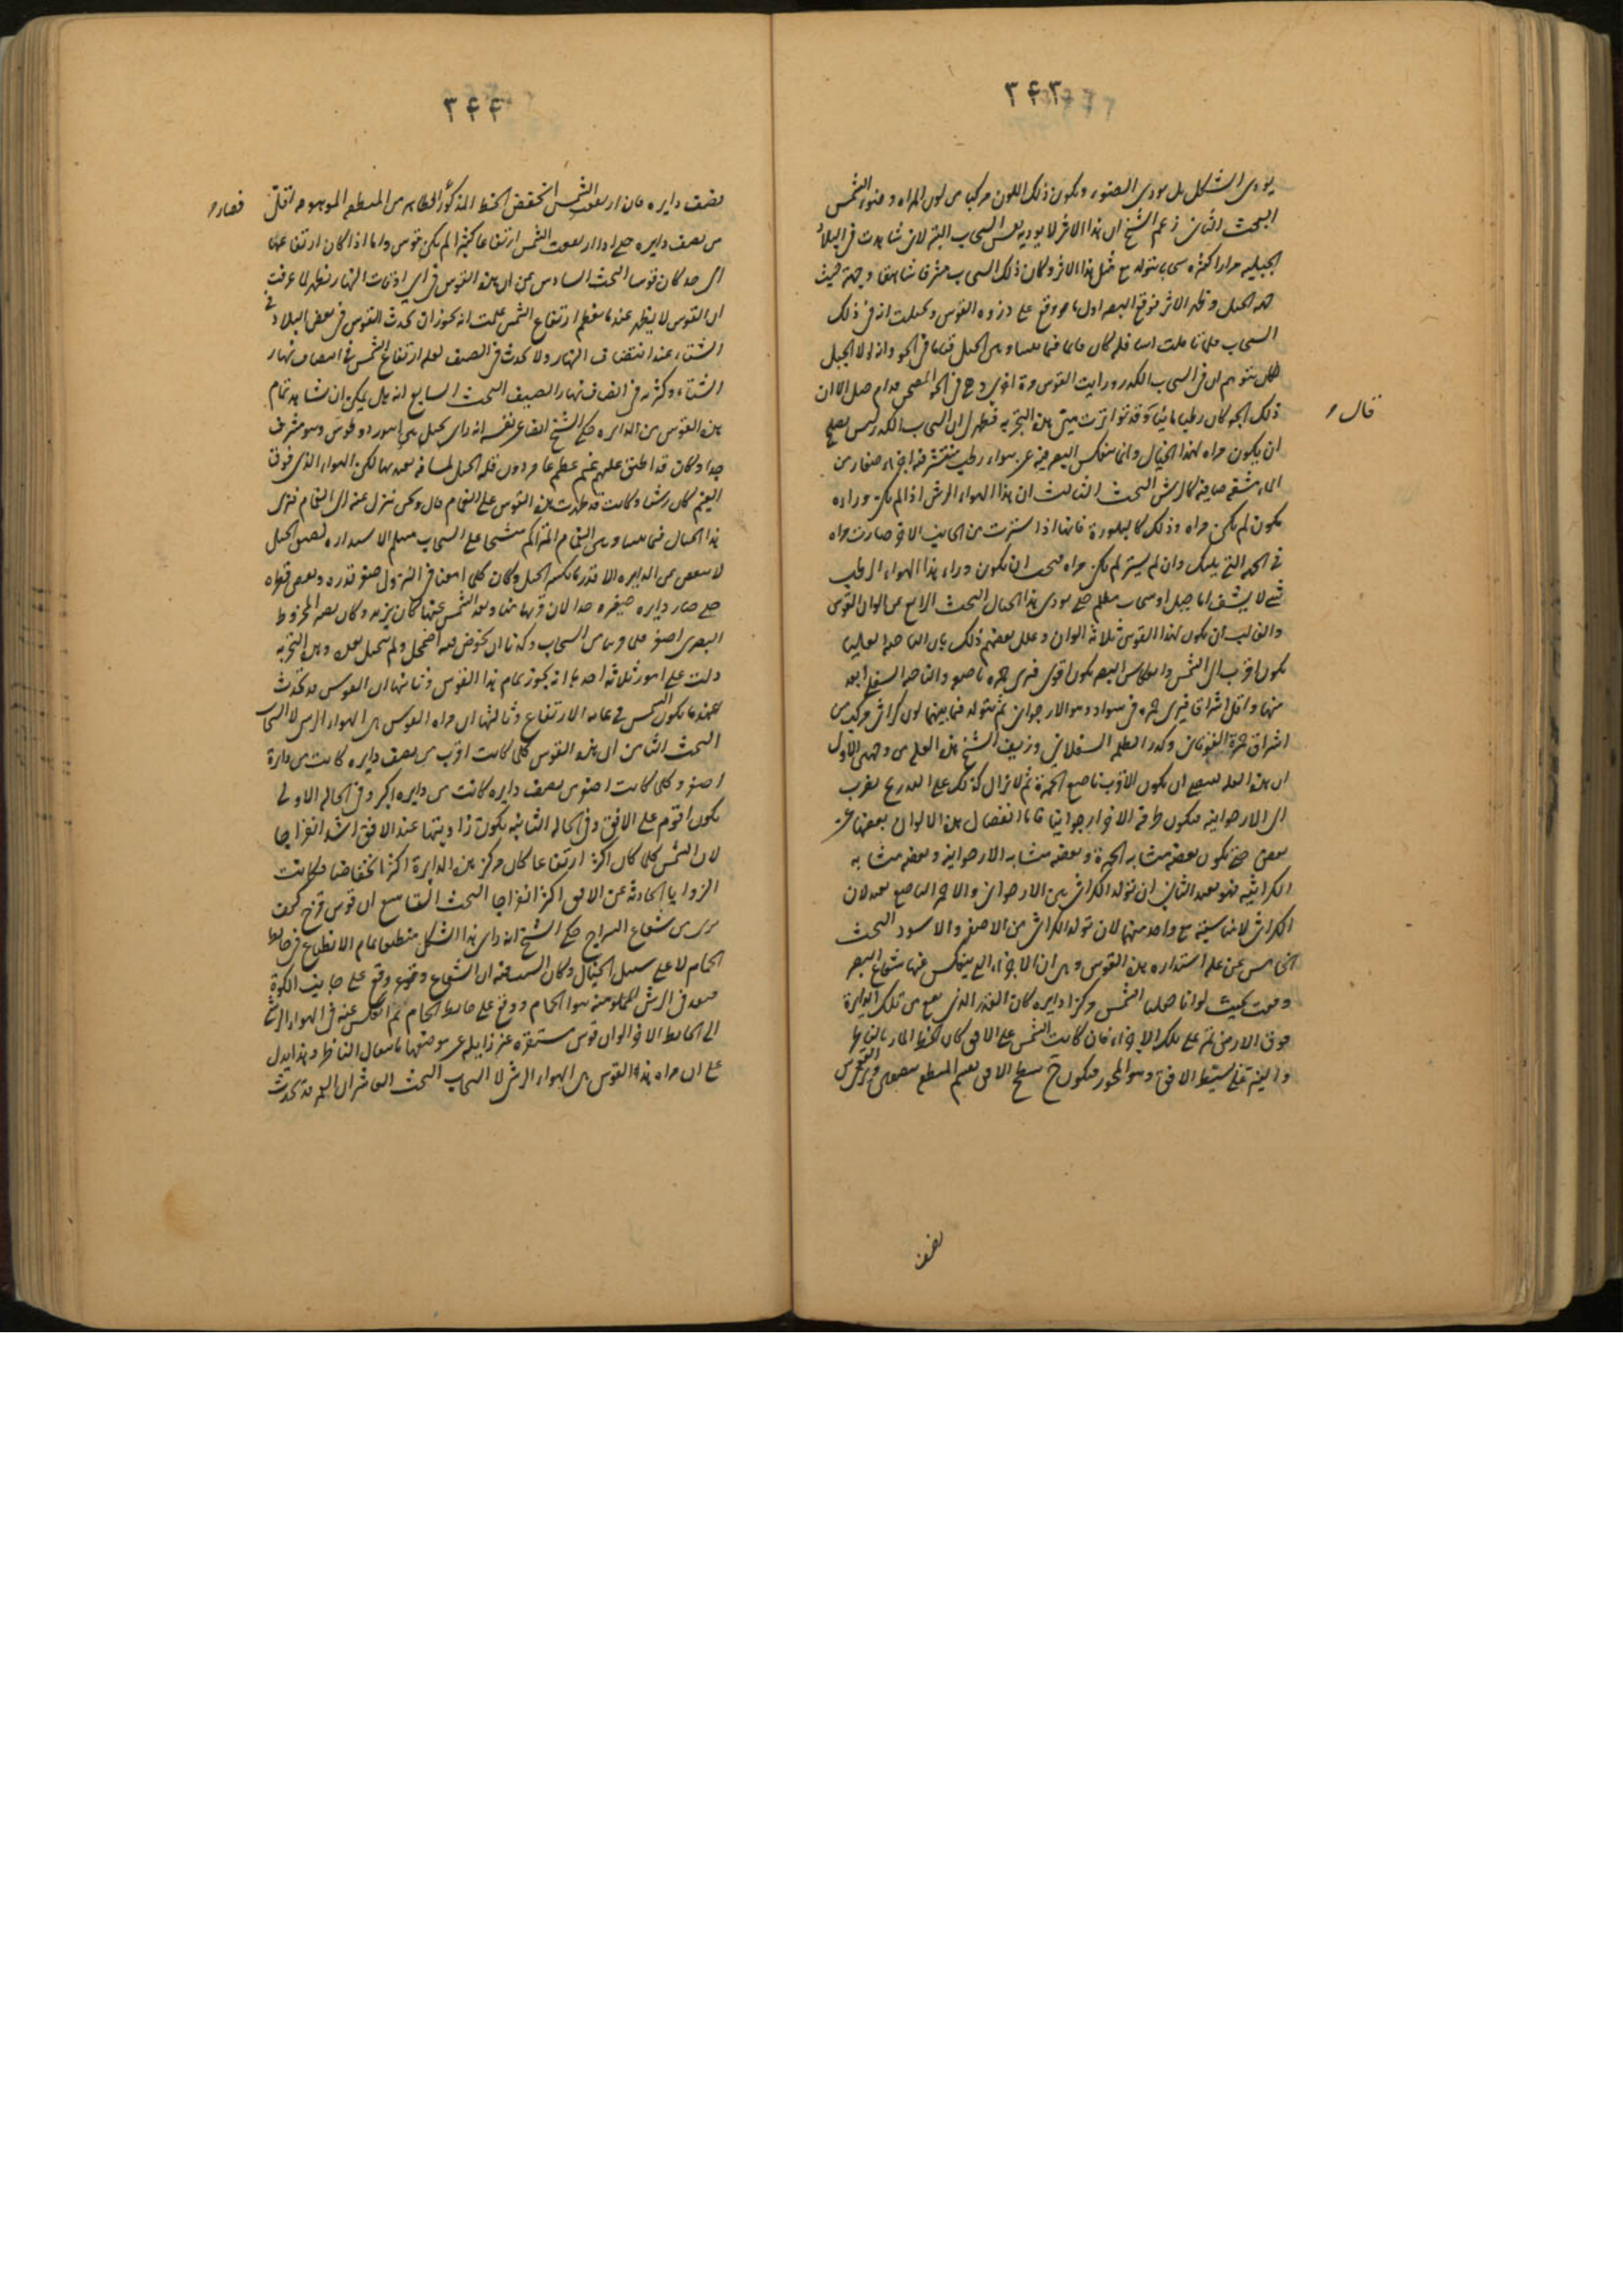 ۳۴۳
يودى الشكل بل يودى الضوء ويكون ذلك اللون مركبا من لون المراة وضوء الشمس
البحث الثانى زعم الشيخ ان هذا الاثر لا يوديه نفس السحاب البتة لانى شاهدت فى البلاد
الجبليه مرارا كثيره سحابا يتولد مع مثل هذا الاثر وكان ذلك السحاب مشرفا شاهقا وجهة حيث
هذه الجبل وظهر الاثر فوقع البصر اول ما وقع على ذروه القوس وتخيلت انه فى ذلك
السحاب فلما تاملت اسافله كان قائما فيما بيننا وبين الجبل قياما فى الجو وانه لولا الجبل
لكان يتوهم انه فى السحاب الكدر ورايت القوس مرة اخرى وهى فى الجو المصحى قدام جبل الا ان
ذلك الجو كان رطبا مائيا وقد تواترت منى هذه التجربه فظهر لى ان السحاب الكدر ليس يصلح
قال
ان يكون مراه لهذا الخيال وانما ينعكس البصر فيه عن هواء رطب منتشر فيه اجزاء صغار من
الماء شفه صافيه كالرش البحث الثالث ان هذا الهواء الرش اذا لم يكن وراءه
يكون لم يكن مراه وذلك كالبلورة فانها اذا سترت من الجانب الاخر صارت مراه
فى الجهه التى يليك وان لم يستر لم يكن مراه فيجب ان يكون وراء هذا الهواء الرطب
شى لا يشف اما جبل او سحاب مظلم حتى يودى هذا الخيال البحث الرابع عن الوان القوس
والغالب ان يكون لهذا القوس ثلاثة الوان وعلل بعضهم ذلك بان الناحيه العاليه
يكون اقرب الى الشمس وانعكاس البصر يكون اقوى فترى حمره ناصعه والناحيه السفلى ابعد
منها واقل اشراقا فيرى حمره فى سواد وهو الارجوانى ثم يتولد فيما بينهما لون كراثى مركب من
اشراق حمرة الفوقانى وكدر الظلمه السفلانى وزيف الشيخ هذه العله من وجهين الاول
ان هذه العله تقتضى ان يكون الاقرب ناصع الحمرة ثم لا يزال كذلك على التدريج يقرب
الى الارجوانيه فيكون طرفه الاخر ارجوانيا فاما انفصال هذه الالوان بعضها عن
بعض حتى يكون بعضه مشابه الحمرة وبعضه مشابه الارجوانيه وبعضه مشابه
الكراثيه فهو بعيد الثانى ان تولد الكراثى بين الارجوانى والاحمر الناصع بعيد لان
الكراثى لا مناسبة مع واحد منهما لان تولد الكراثى من الاصفر والاسود البحث
الخامس عن علة استداره هذه القوس وهى ان الاجزاء التى ينعكس عنها شعاع البصر
وقعت بحيث لو انا جعلنا الشمس مركزا دايره كان القدر الذى يقع من تلك الدايرة
فوق الارض تمر على تلك الاجزاء فان كانت الشمس على الافق كان الخط المار بالناظر
والنير على بسيط الافق وهو المحور فيكون ح سطح الافق يقسم المنطقه بنصفين فترى القوس
نصف
۳۴۴
نصف دايره فان ارتفعت الشمس انخفض الخط المذكور فصار الظاهر من المنطقه الموهومه اقل
من نصف دايره حتى اذا ارتفعت الشمس ارتفاعا كثيرا لم يكن قوس واما اذا كان ارتفاعها
الى حد كان قوسا البحث السادس عن ان هذه القوس فى اى اوقات النهار تظهر لما عرفت
ان القوس لا يظهر عند ما يعظم ارتفاع الشمس علمت انه يجوز ان يحدث القوس فى بعض البلاد فى
الشتاء عند انتصاف النهار ولا يحدث فى الصيف لعله ارتفاع الشمس فى انصاف نهار
الشتاء وكثرته فى انصاف نهار الصيف البحث السابع انه هل يمكن ان تشاهد تمام
هذه القوس من الدايره حكى الشيخ ايضا عن نفسه انه راى بجبل بين ابيورد وطوس وهو مشرف
جدا وكان قد اطبق عليهم غيم عظيم عام دون قله الجبل لمسافه يعتد بها لكن الهواء الذى فوق
الغيم كان رشا وكانت قد ظهرت هذه القوس على الغمام قال ونحن ننزل عنه الى الغمام فترى
هذا الخيال فيما بيننا وبين الغمام المتراكم منشبحا على السحاب مسلم الاستداره لصق الجبل
لا ينقص من الدايره الا قدر ما يكسره الجبل وكان كلما امعنا فى النزول صغر قدره ونقص قطره
حتى صار دايره صغيره جدا لان قربها منا وبعد الشمس عنها كان يزيد وكان يصير المخروط
البصرى اصغر فلما قربنا من السحاب وكدنا ان نخوض فيه اضمحل ولم يتخيل بعد وهذه التجربه
دلت على امور ثلاثه احدها انه يجوز تمام هذا القوس وثانيها ان القوس قد تحدث
عند ما يكون الشمس فى غاية الارتفاع وثالثها ان مراه القوس هى الهواء الرش لا السحاب
البحث الثامن ان هذه القوس كلما كانت اقرب من نصف دايره كانت من دائرة
اصغر وكلما كانت اصغر من نصف دايره كانت من دايره اكبر وفى الحاله الاولى
يكون اقوم على الافق وفى الحاله الثانيه يكون زاويتها عند الافق اشد انفراجا
لان الشمس كلما كان اكثر ارتفاعا كان مركز هذه الدايرة اكثر انخفاضا وكانت
الزوايا الحادثه عن الافق اكثر انفراجا البحث التاسع ان قوس قزح كيف
يرى من شعاع السراج حكى الشيخ انه راى هذا الشكل منطبعا تمام الانطباع فى حائط
الحمام لا على سبيل الخيال وكان السبب فيه ان الشعاع وقع على جانب الكوة
فنفد فى الرش المملو منه هوا الحمام ووقع على حائط الحمام ثم انعكس عنه فى الهواء الرش
الى الحائط الاخر الوان قوس مستقره غير زايله عن موضعها بانتقال الناظر وهذا يدل
على ان مراه هذه القوس هى الهواء الرش لا السحاب البحث العاشر ان القمر قد يحدث